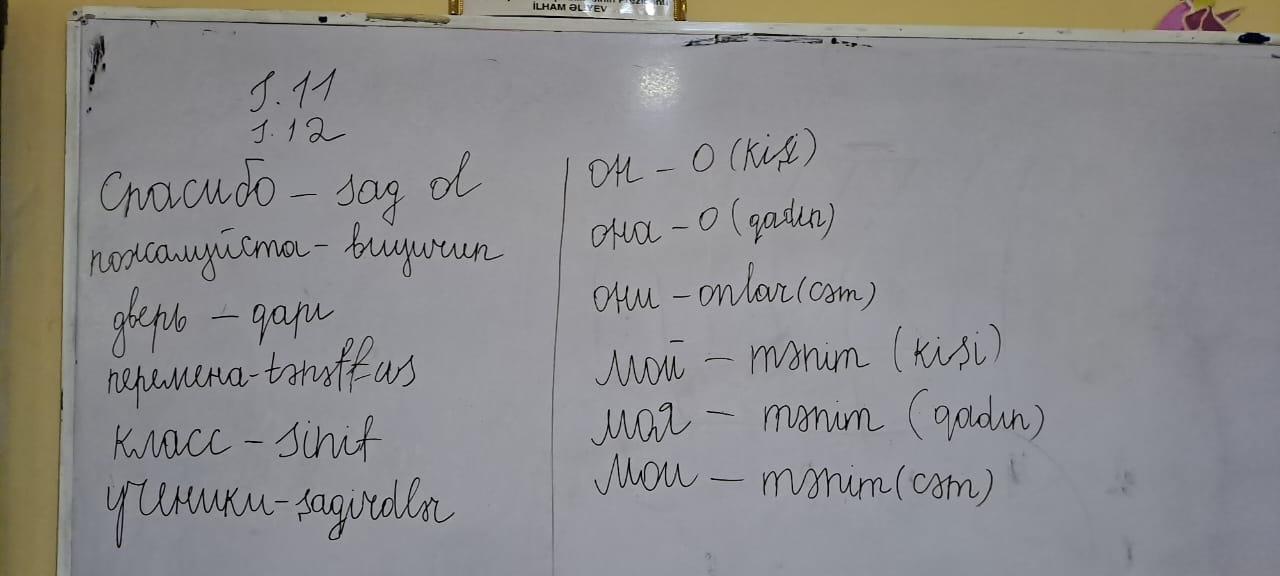 İLHAM ƏLİYEV
1.11
1.12
Спасибо – sag ol
пожалуйста – buyurun
дверь – qapı
перемена – tənəffüs
класс – sinif
ученики – şagirdlər
он – O (kişi)
она – O (qadın)
они – onlar (cəm)
мой – mənim (kişi)
моя – mənim (qadın)
мои – mənim (cəm)